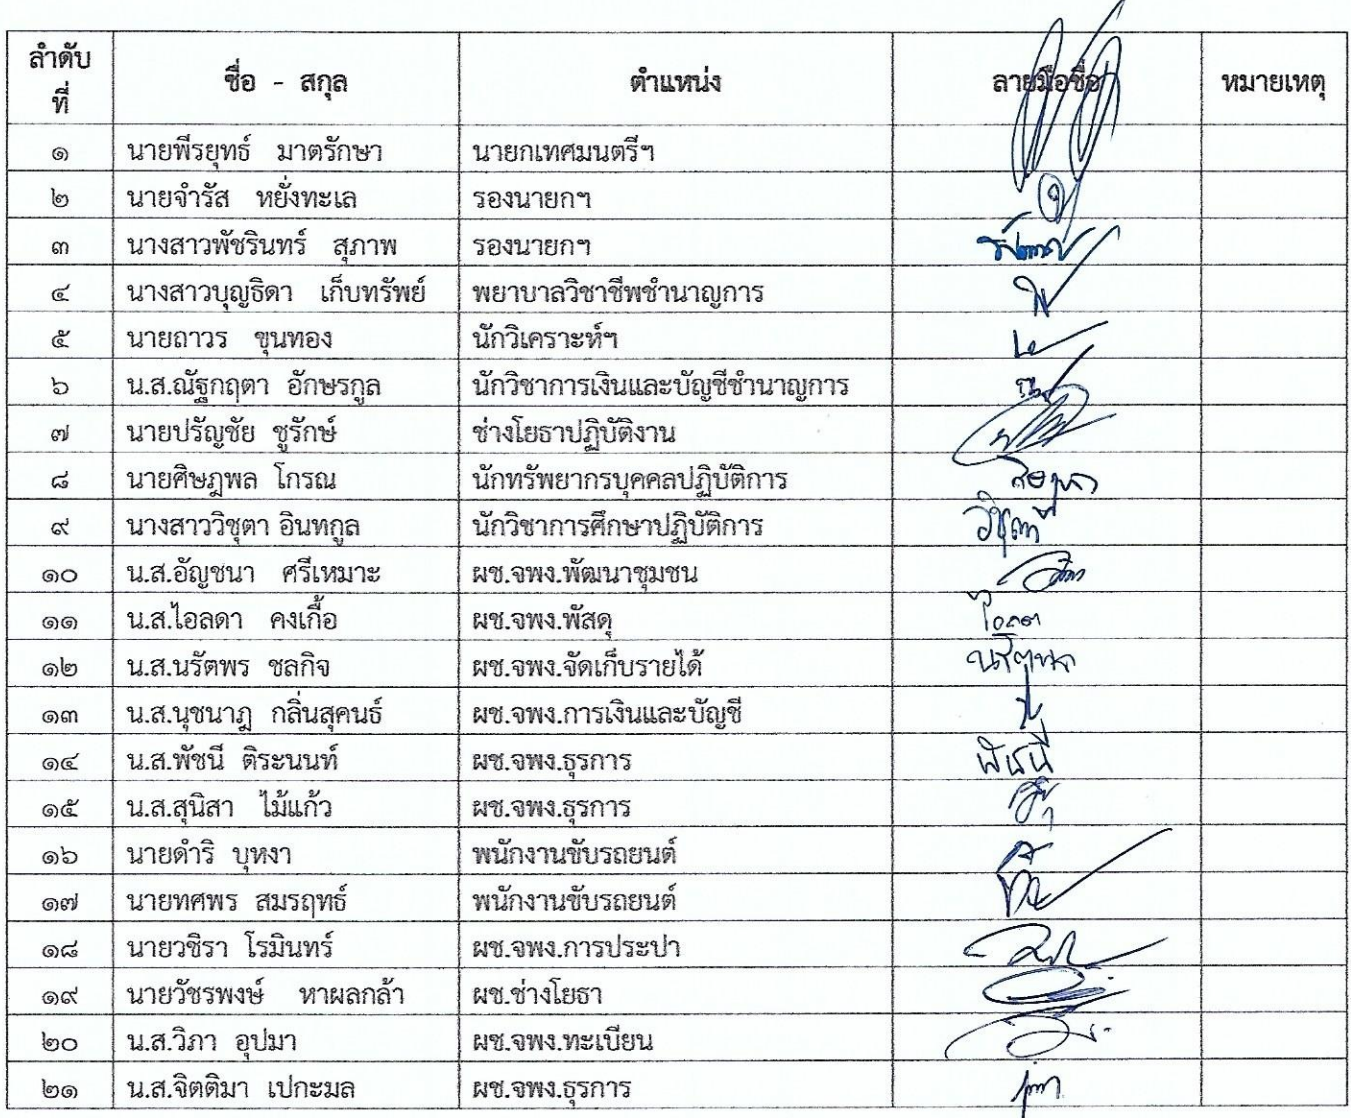 ลำดับที่ ชื่อ - สกุล ตำแหน่ง ลายมือชื่อ หมายเหตุ
๑ นายพีรยุทธ์ มาตรักษา นายกเทศมนตรีฯ
๒ นายจำรัส หยั่งทะเล รองนายกฯ
๓ นางสาวพัชรินทร์ สุภาพ รองนายกฯ
๔ นางสาวบุญธิดา เก็บทรัพย์ พยาบาลวิชาชีพชำนาญการ
๕ นายถาวร ขุนทอง นักวิเคราะห์ฯ
๖ น.ส.ณัฐกฤตา อักษรกูล นักวิชาการเงินและบัญชีชำนาญการ
๗ นายปรัญชัย ชูรักษ์ ช่างโยธาปฏิบัติงาน
๘ นายศิษฎพล โกรณ นักทรัพยากรบุคคลปฏิบัติการ
๙ นางสาววิชุตา อินทกูล นักวิชาการศึกษาปฏิบัติการ
๑๐ น.ส.อัญชนา ศรีเหมาะ ผช.จพง.พัฒนาชุมชน
๑๑ น.ส.ไอลดา คงเกื้อ ผช.จพง.พัสดุ ไอลดา
๑๒ น.ส.นรัตพร ชลกิจ ผช.จพง.จัดเก็บรายได้
๑๓ น.ส.นุชนาฎ กลิ่นสุคนธ์ ผช.จพง.การเงินและบัญชี
๑๔ น.ส.พัชนี ติระนนท์ ผช.จพง.ธุรการ พัชนี
๑๕ น.ส.สุนิสา ไม้แก้ว ผช.จพง.ธุรการ
๑๖ นายดำริ บุหงา พนักงานขับรถยนต์
๑๗ นายทศพร สมรฤทธ์ พนักงานขับรถยนต์
๑๘ นายวชิรา โรมินทร์ ผช.จพง.การประปา
๑๙ นายวัชรพงษ์ หาผลกล้า ผช.ช่างโยธา
๒๐ น.ส.วิภา อุปมา ผช.จพง.ทะเบียน
๒๑ น.ส.จิตติมา เปกะมล ผช.จพง.ธุรการ